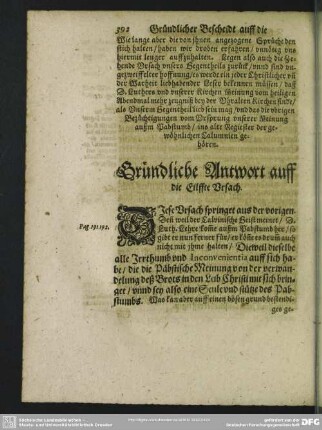 592 Gründlicher Bescheidt auff die
Wie lange aber die von jhnen angezogene Sprüche den
stich halten / haben wir droben erfahren / vnnötig vns
hiermit lenger auffzuhalten. Legen also auch die Ze-
hende Vrsach vnsers Gegentheils zurück / vnnd sind vn-
gezweiffelter hoffnung / es werde ein jeder Christlicher vñ
der Warheit liebhabender Leser bekennen müssen / daß
D. Luthers vnd vnserer Kirchen Meinung vom heiligen
Abendmal mehr zeugniß bey der Vhralten Kirchen finde /
als Vnserm Gegentheil lieb sein mag / vnd das die vbrigen
Bezüchtigungen vom Vrsprung vnserer Meinung
außm Pabstumb / ins alte Register der ge-
wöhnlichen Calumnien ge-
hören.
Gründliche Antwort auff
die Eilffte Vrsach.
DIese Vrsach springet aus der vorigen.
Deñ weil der Calvinische Geist meinet / D.
Luth. Lehre kom̃e außm Pabstumb her / so
gibt er nun ferner für / er kön̄e es darumb auch
nicht mit jhme halten / Dieweil dieselbe
alle Irrthumb vnd Inconvenientia auff sich ha-
be / die die Päbstische Meinung von der verwan-
delung deß Brots in den Leib Christi mit sich brin-
get / vnnd sey also eine Seule vnd stütze des Pab-
stumbs. Was kan aber auff einen bösen grund bestendi-
ges ge-
Pag. 191. 192.